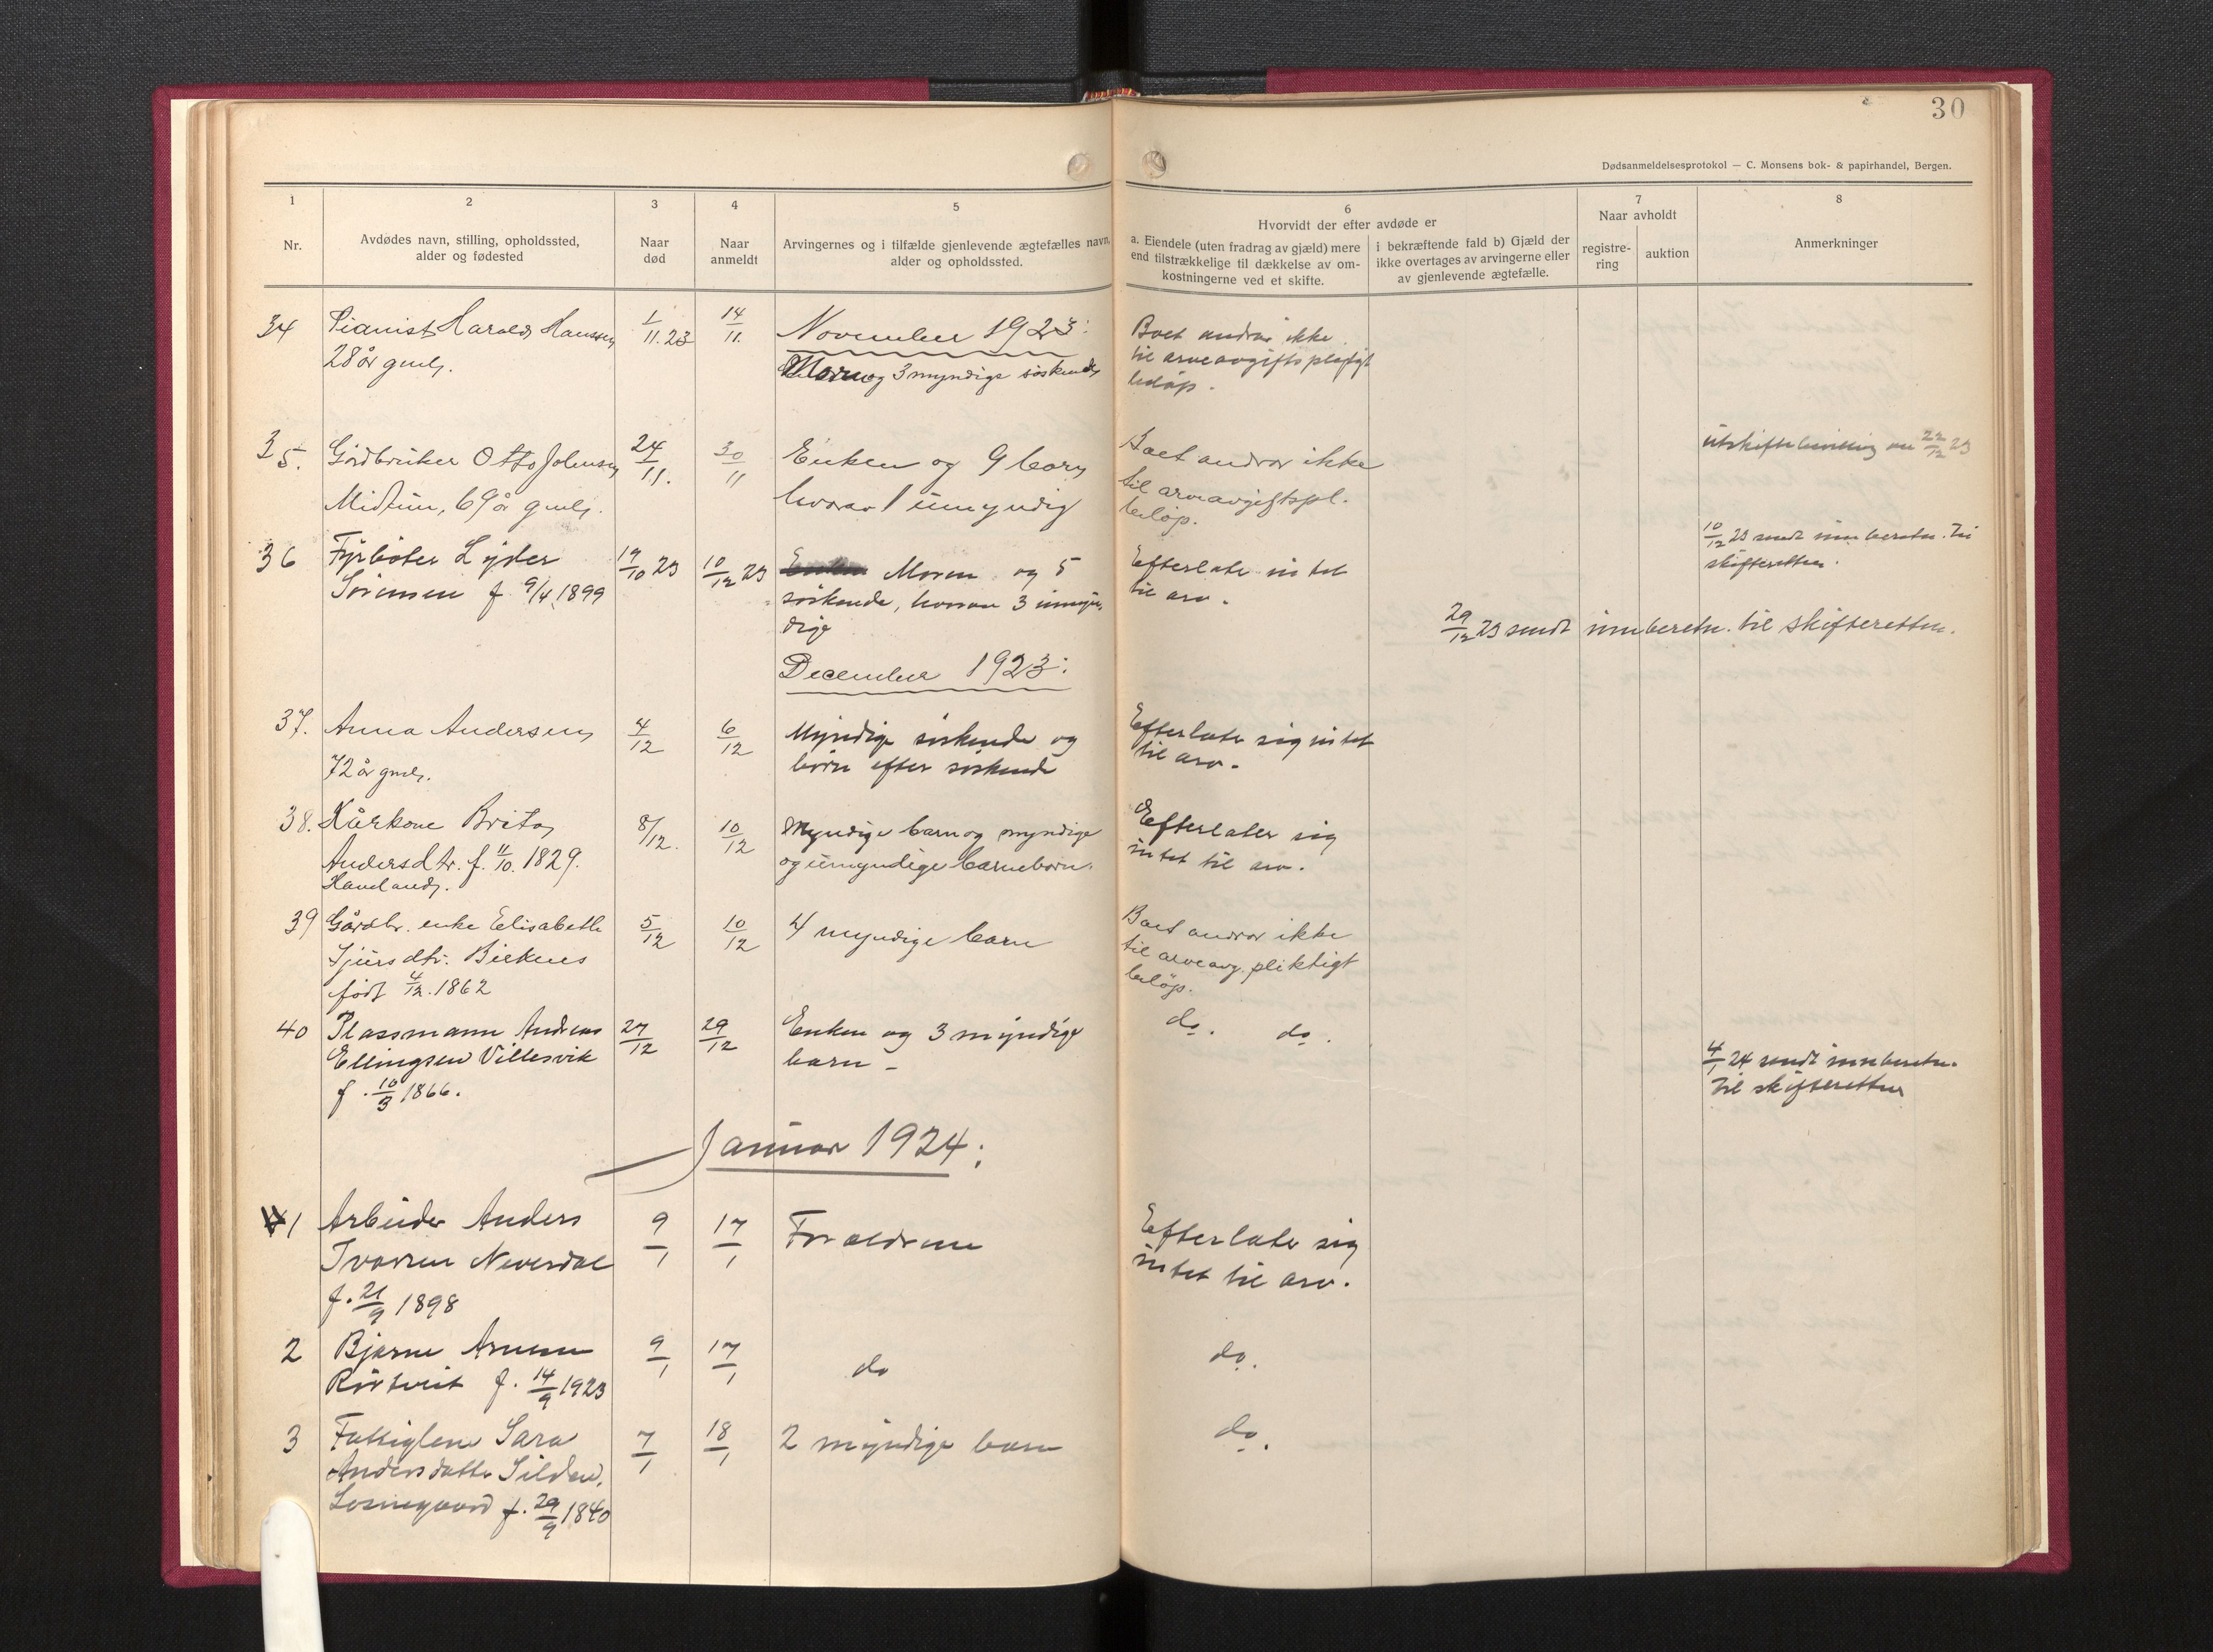 30
Dødsanmeldelsesprotokol — C. Monsens bok- & papirhandel, Bergen.
1
Nr.
2
Avdødes navn, stilling, opholdssted,
alder og fødested
3
Naar
død
4
Naar
anmeldt
5
Arvingernes og i tilfælde gjenlevende ægtefælles navn,
alder og opholdssted.
6
Hvorvidt der efter avdøde er
a. Eiendele (uten fradrag av gjæld) mere
end tilstrækkelige til dækkelse av om-
kostningerne ved et skifte.
i bekræftende fald b) Gjæld der
ikke overtages av arvingerne eller
av gjenlevende ægtefælle.
7
Naar avholdt
registre-
ring
auktion
8
Anmerkninger
November 1923:
34
Pianist Harald Hansen
28 år gml.
1/11.23
14/11.
Moren og 3 myndige søskende
Boet andrar ikke
til arveavgiftspligtigt
beløp.
35.
Gårdbruker Otto Johnsen
Midtun, 69 år gml.
24/11.
30/11
Enken og 9 barn
hvorav 1 umyndig
Boet andrar ikke
til arveavgiftspl.
beløp.
22/12 23
36
Fyrbøter Lyder
Sørensen f 9/4 1899
19/10 23
10/12 23
Moren og 5
søskende, hvorav 3 umyn-
dige
Efterlater intet
til arv.
10/12 23 sendt innberetn. til
skifteretten.
29/12 23 sendt innberetn. til skifteretten.
December 1923:
37.
Anna Andersen
72 år gml.
4/12
6/12
Myndige søskende og
børn efter søskende
Efterlater sig intet
til arv.
38.
Kårkone Brita
Andersdtr. f. 11/10. 1829.
Haveland.
8/12.
10/12
Myndige barn og myndige
og umyndige barnebørn.
Efterlater sig
intet til arv.
39
Gårdbr. enke Elisabeth
Sjursdtr. Birknes
født 4/12. 1862
5/12
10/12
4 myndige barn
Boet andrar ikke
til arveavg. pliktigt
beløp.
40
Plassmann Andreas
Ellingsen Villesvik
f. 10/3 1866.
27/12
29/12
Enken og 3 myndige
barn –
do. do.
4/1 24 sendt innberetn.
til skifteretten
Januar 1924:
1
Arbeider Anders
Ivarsen Neverdal
f. 21/9 1898
9/1
17/1
Forældrene
Efterlater sig
intet til arv.
2
Bjarne Arnesen
f. 14/9 1923
9/1
17/1
do
do.
3
Fattiglem Sara
Andersdatter Silden,
Losnegaard f. 29/9 1840
7/1
18/1
2 myndige barn
do.